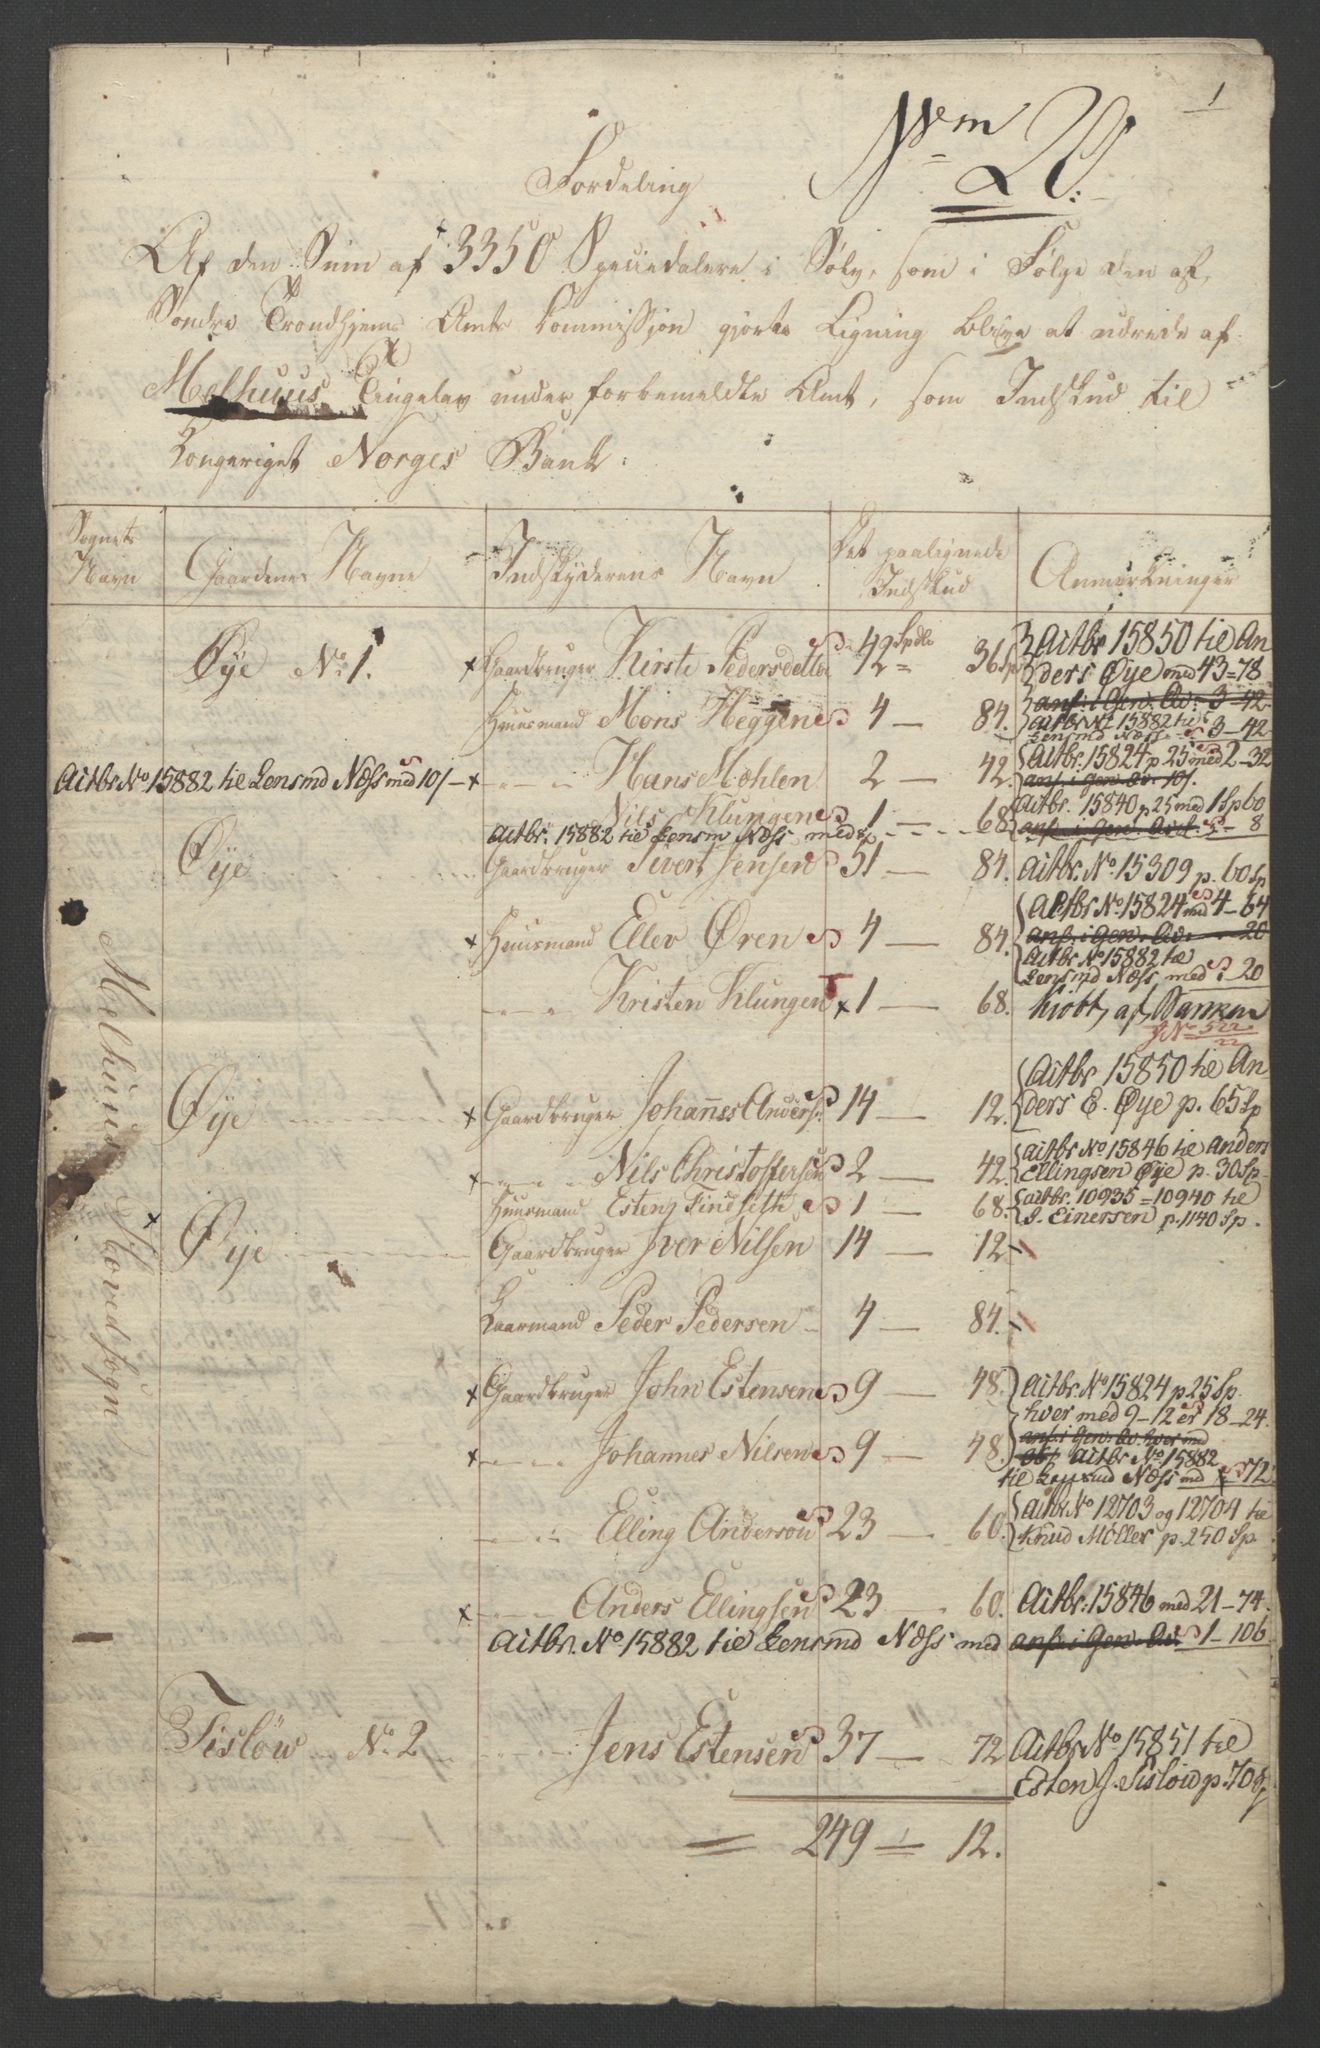 1
Nem 20:
Fordeling
Af den Sum af 13350 Speciedalere i Sølv, som i Følge den af
Søndre Trondhjems Amts Commission gjorte Ligning blive at udrede af
Melhuus Tingelav under forbemeldte Amt, som Indskud til
Kongeriget Norges Bank.
Sognets Navn | Gaardenes Navne | Indskyderens Navn | Det paalignede Indskud | Anmærkninger
Øye No 1. x Gaardbruger Kirste Pedersdatter 42 Spdlr 36 s {Actbr 15850 til An
ders Øye med 43=78
Huusmand Mons Heggen 4 — 84. {anf: i Gen. Av: 3-42
Actbr No 15882 til
Lensmd Næss 3-42
Actbr No 15882 til Lensmd Næss med 10/- x Hans Mæhlen 2 — 42. {Actbr. 15824 p 25 med 2-32
anf. i Gen. Av. 10/.
Nils Klungen 1 — 68 {Actbr. 15840 p 25 med 1 Sp 60
Actbr. 15882 til Lensm Næss med 8 anf. i Gen. Act. - 8
Øye Gaardbruger Sivert Jensen 51 — 84. Actbr. No 15309 p. 60 Sp
x Huusmand Ellev Øren 4 — 84. {Actbr No 15824 med 4-64
anf. i Gen. Av. 20
Actbr No 15882 til
Lensmd Næss med : 20
Kristen Klungen x 1 — 68. kiøbt af Banken
J No 522/22
Øye x Gaardbruger Johannes Anders: 14 — 12. {Actbr 15850 til An
ders E. Øye p. 65 Sp
x Nils Christoffersen 2 — 42. {Actbr No 15846 til Anders
Ellingsen Øye p. 30 Sp
Huusmand Esten Findseth 1 — 68. {actbr. 10935=10940 til
J. Einersen p. 1140 Sp.
x Øye Gaardbruger Iver Nilsen 14 — 12
Kaarmand Peder Pedersen 4 — 84.
x Gaardbruger John Estensen 9 — 48. } Actbr. No 15824 p 25 Sp.
hver med 9-12 er 18-24.
x Johannes Nilsen 9 — 48. } anf. i Gen. Av. hver med
Actbr No 15882
til Lensmd Næss med 72
Elling Anderson 23 — 60. {Actbr No 12703 og 12704 til
Knud Møller p. 250 Sp.
x Anders Ellingsen 23 — 60. Actbr. 15846 med 21-74.
Actbr. No 15882 til Lensmd Næss med anf. i Gen. Av. 1-106
Tisløw No 2 Jens Estensen 37 — 72 Actbr No 15851 til
Esten J. Tisløw p. 70 Sp
= 249 = 12.
Melhuus Hovedsogn